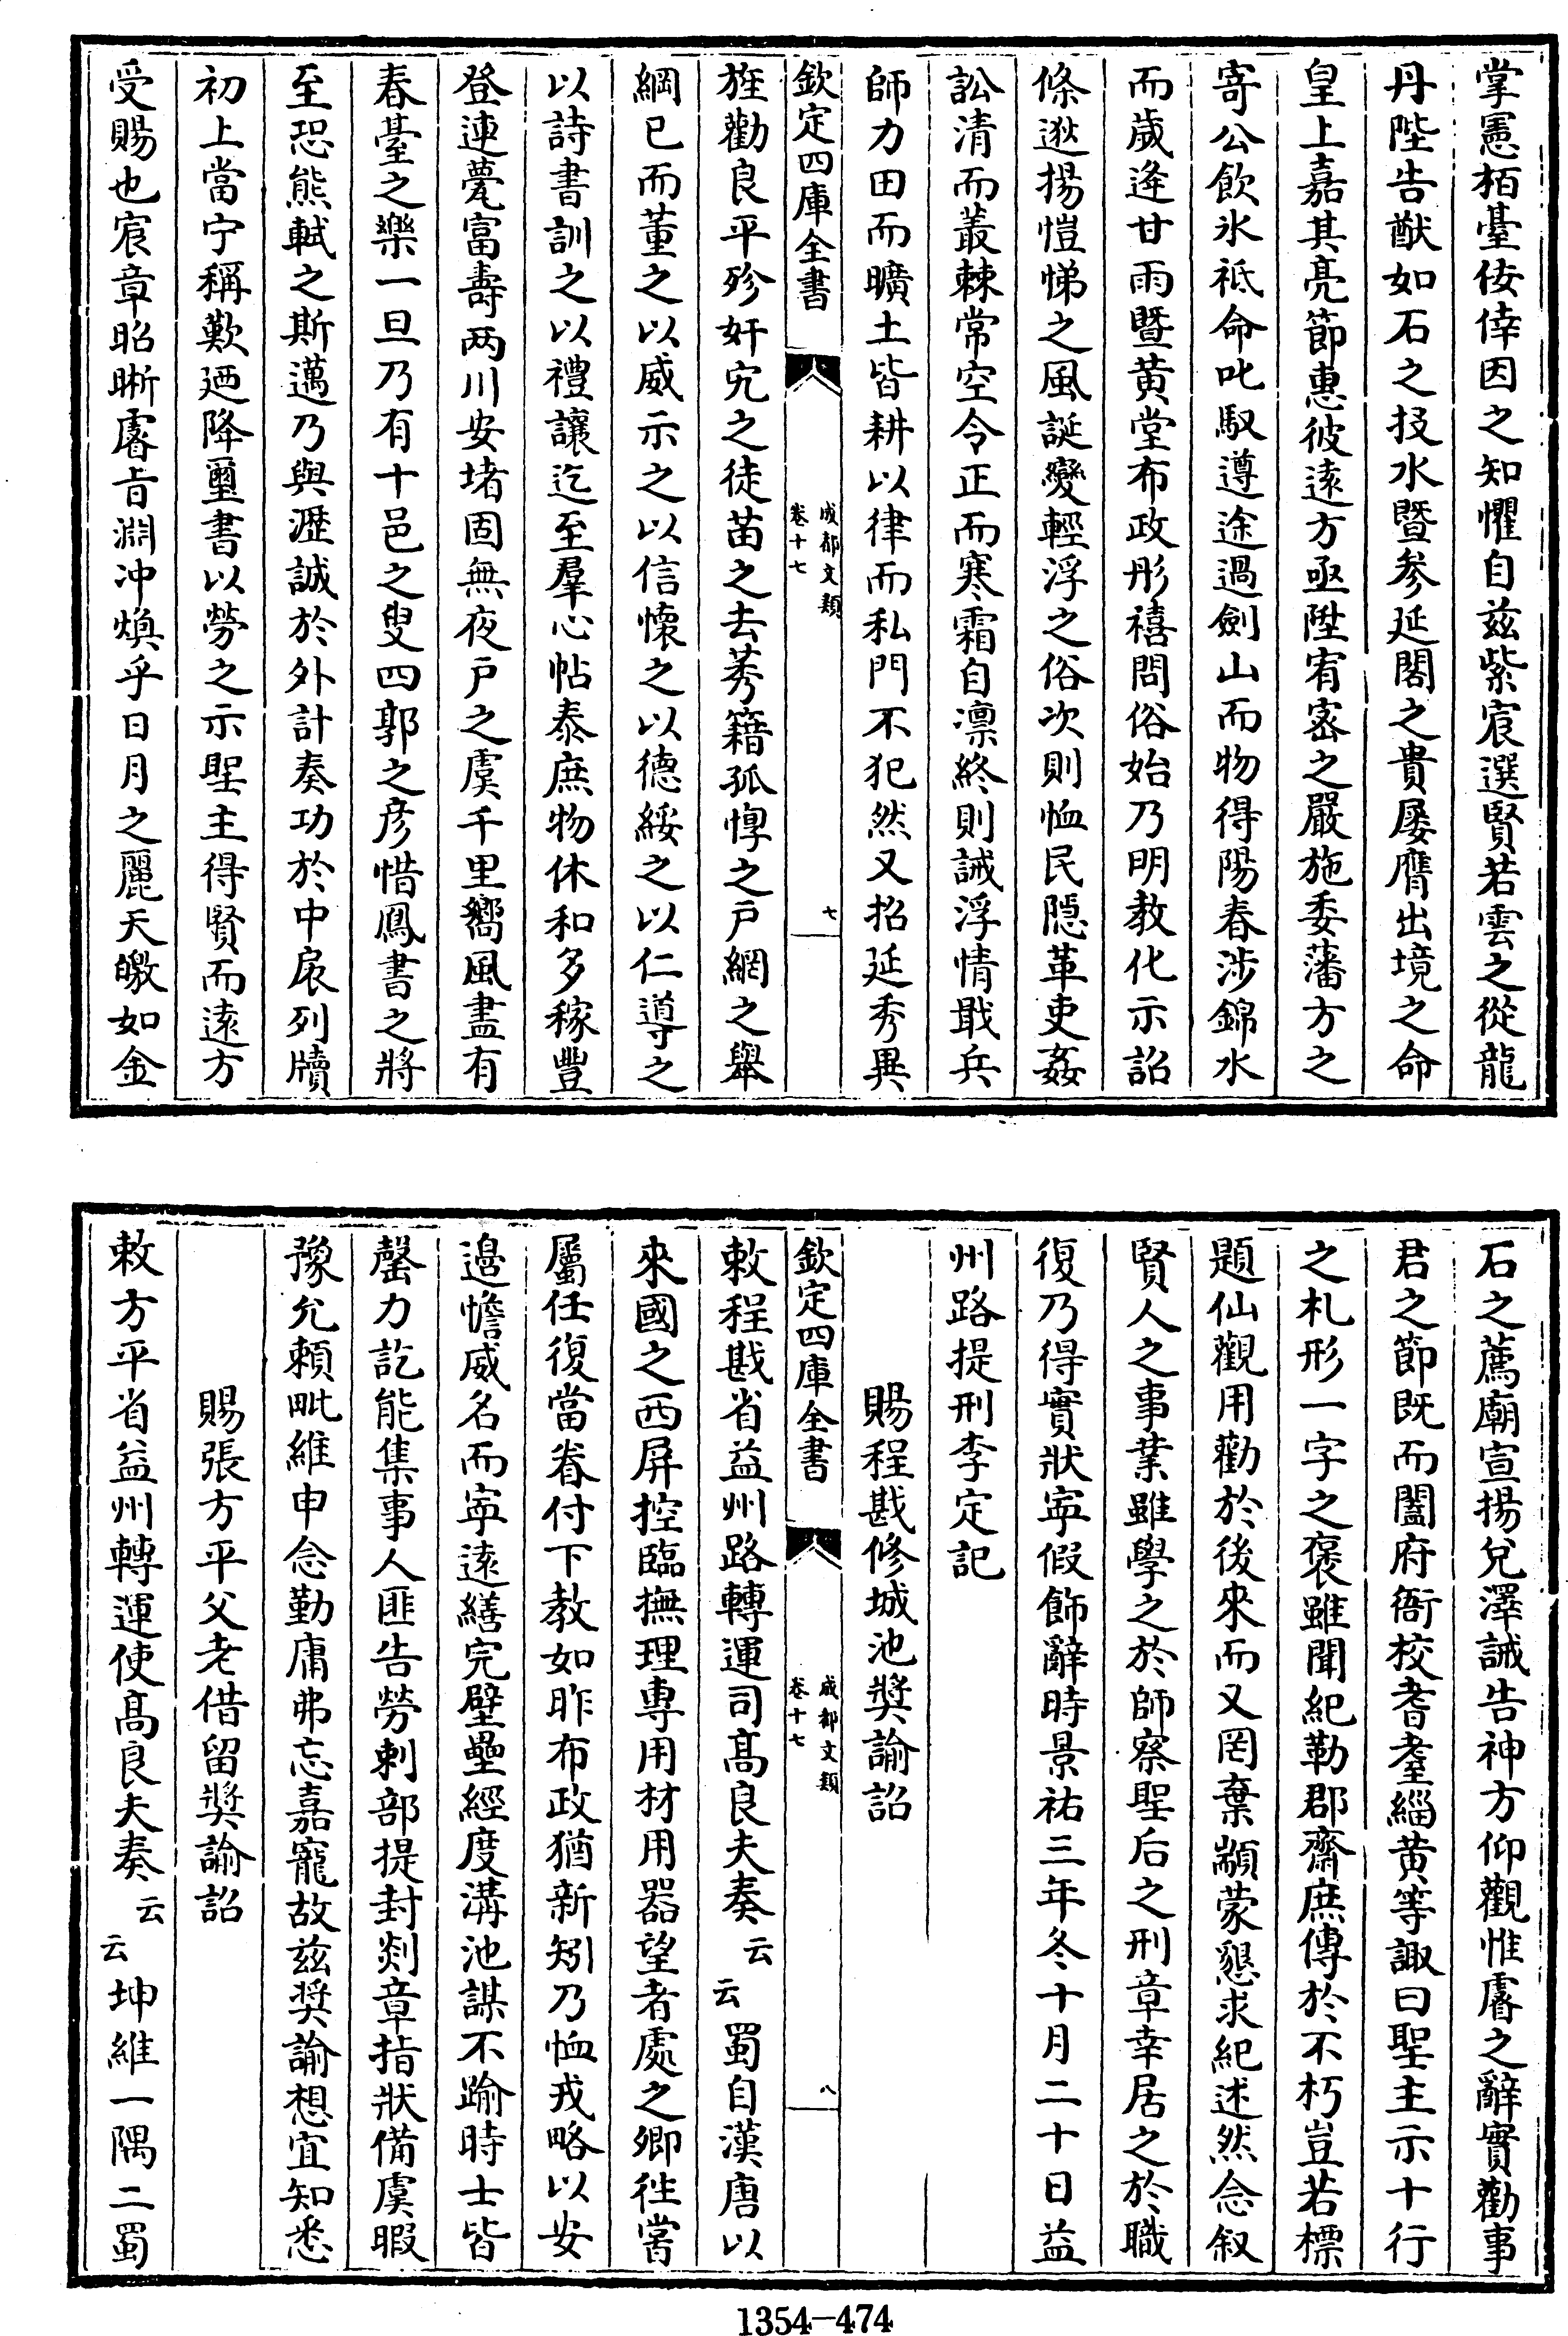 掌憲栢臺佞倖因之知懼自兹紫宸選賢若雲之從龍
丹陛告猷如石之投水暨參延閣之貴屡膺出境之命
皇上嘉其亮節惠彼逺方亟陞宥宻之嚴施委藩方之
寄公飲氷祗命叱馭遵途過劍山而物得陽春涉錦水
而歳逢甘雨暨黄堂布政彤禧問俗始乃明教化示詔
條逖揚愷悌之風誕變輕浮之俗次則恤民隠革吏姦
訟清而叢棘常空令正而寒霜自凛終則誡浮情戢兵
師力田而曠土皆耕以律而私門不犯然又招延秀異
欽定四庫全書
成都文類
卷十七
七
旌勸良平殄奸宄之徒苗之去莠籍孤惸之戸網之舉
綱已而董之以威示之以信懷之以德綏之以仁導之
以詩書訓之以禮讓迄至羣心帖泰庶物休和多稼豐
登連甍富壽两川安堵固無夜戸之虞千里嚮風盡有
春臺之樂一旦乃有十邑之叟四郭之彦惜鳳書之將
至恐熊軾之斯邁乃與瀝誠於外計奏功於中扆列牘
初上當宁稱歎廼降璽書以勞之示聖主得賢而逺方
受賜也宸章昭晰睿旨淵冲煥乎日月之麗天皦如金
石之薦廟宣揚兌澤誡告神方仰觀惟睿之辭實勸事
君之節既而闔府衙校耆耋緇黄等諏曰聖主示十行
之札形一字之褒雖聞紀勒郡齋庶傳於不朽豈若標
題仙觀用勸於後來而又罔棄顓蒙懇求紀述然念叙
賢人之事業雖學之於師察聖后之刑章幸居之於職
復乃得實狀寜假飾辭時景祐三年冬十月二十日益
州路提刑李定記
賜程戡修城池奬諭詔
欽定四庫全書
成都文類
卷十七
八
敕程戡省益州路轉運司髙良夫奏云云蜀自漢唐以
來國之西屏控臨撫理専用材用器望者處之卿徃嘗
屬任復當眷付下教如昨布政猶新矧乃恤戎略以安
邉憺威名而寜逺繕完壁壘經度溝池謀不踰時士皆
罄力訖能集事人匪告勞剌部提封剡章指狀備虞暇
豫允頼毗維申念勤庸弗忘嘉寵故兹奬諭想宜知悉
賜張方平父老借留奬諭詔
敕方平省益州轉運使髙良夫奏云云坤維一隅二蜀
1354-474